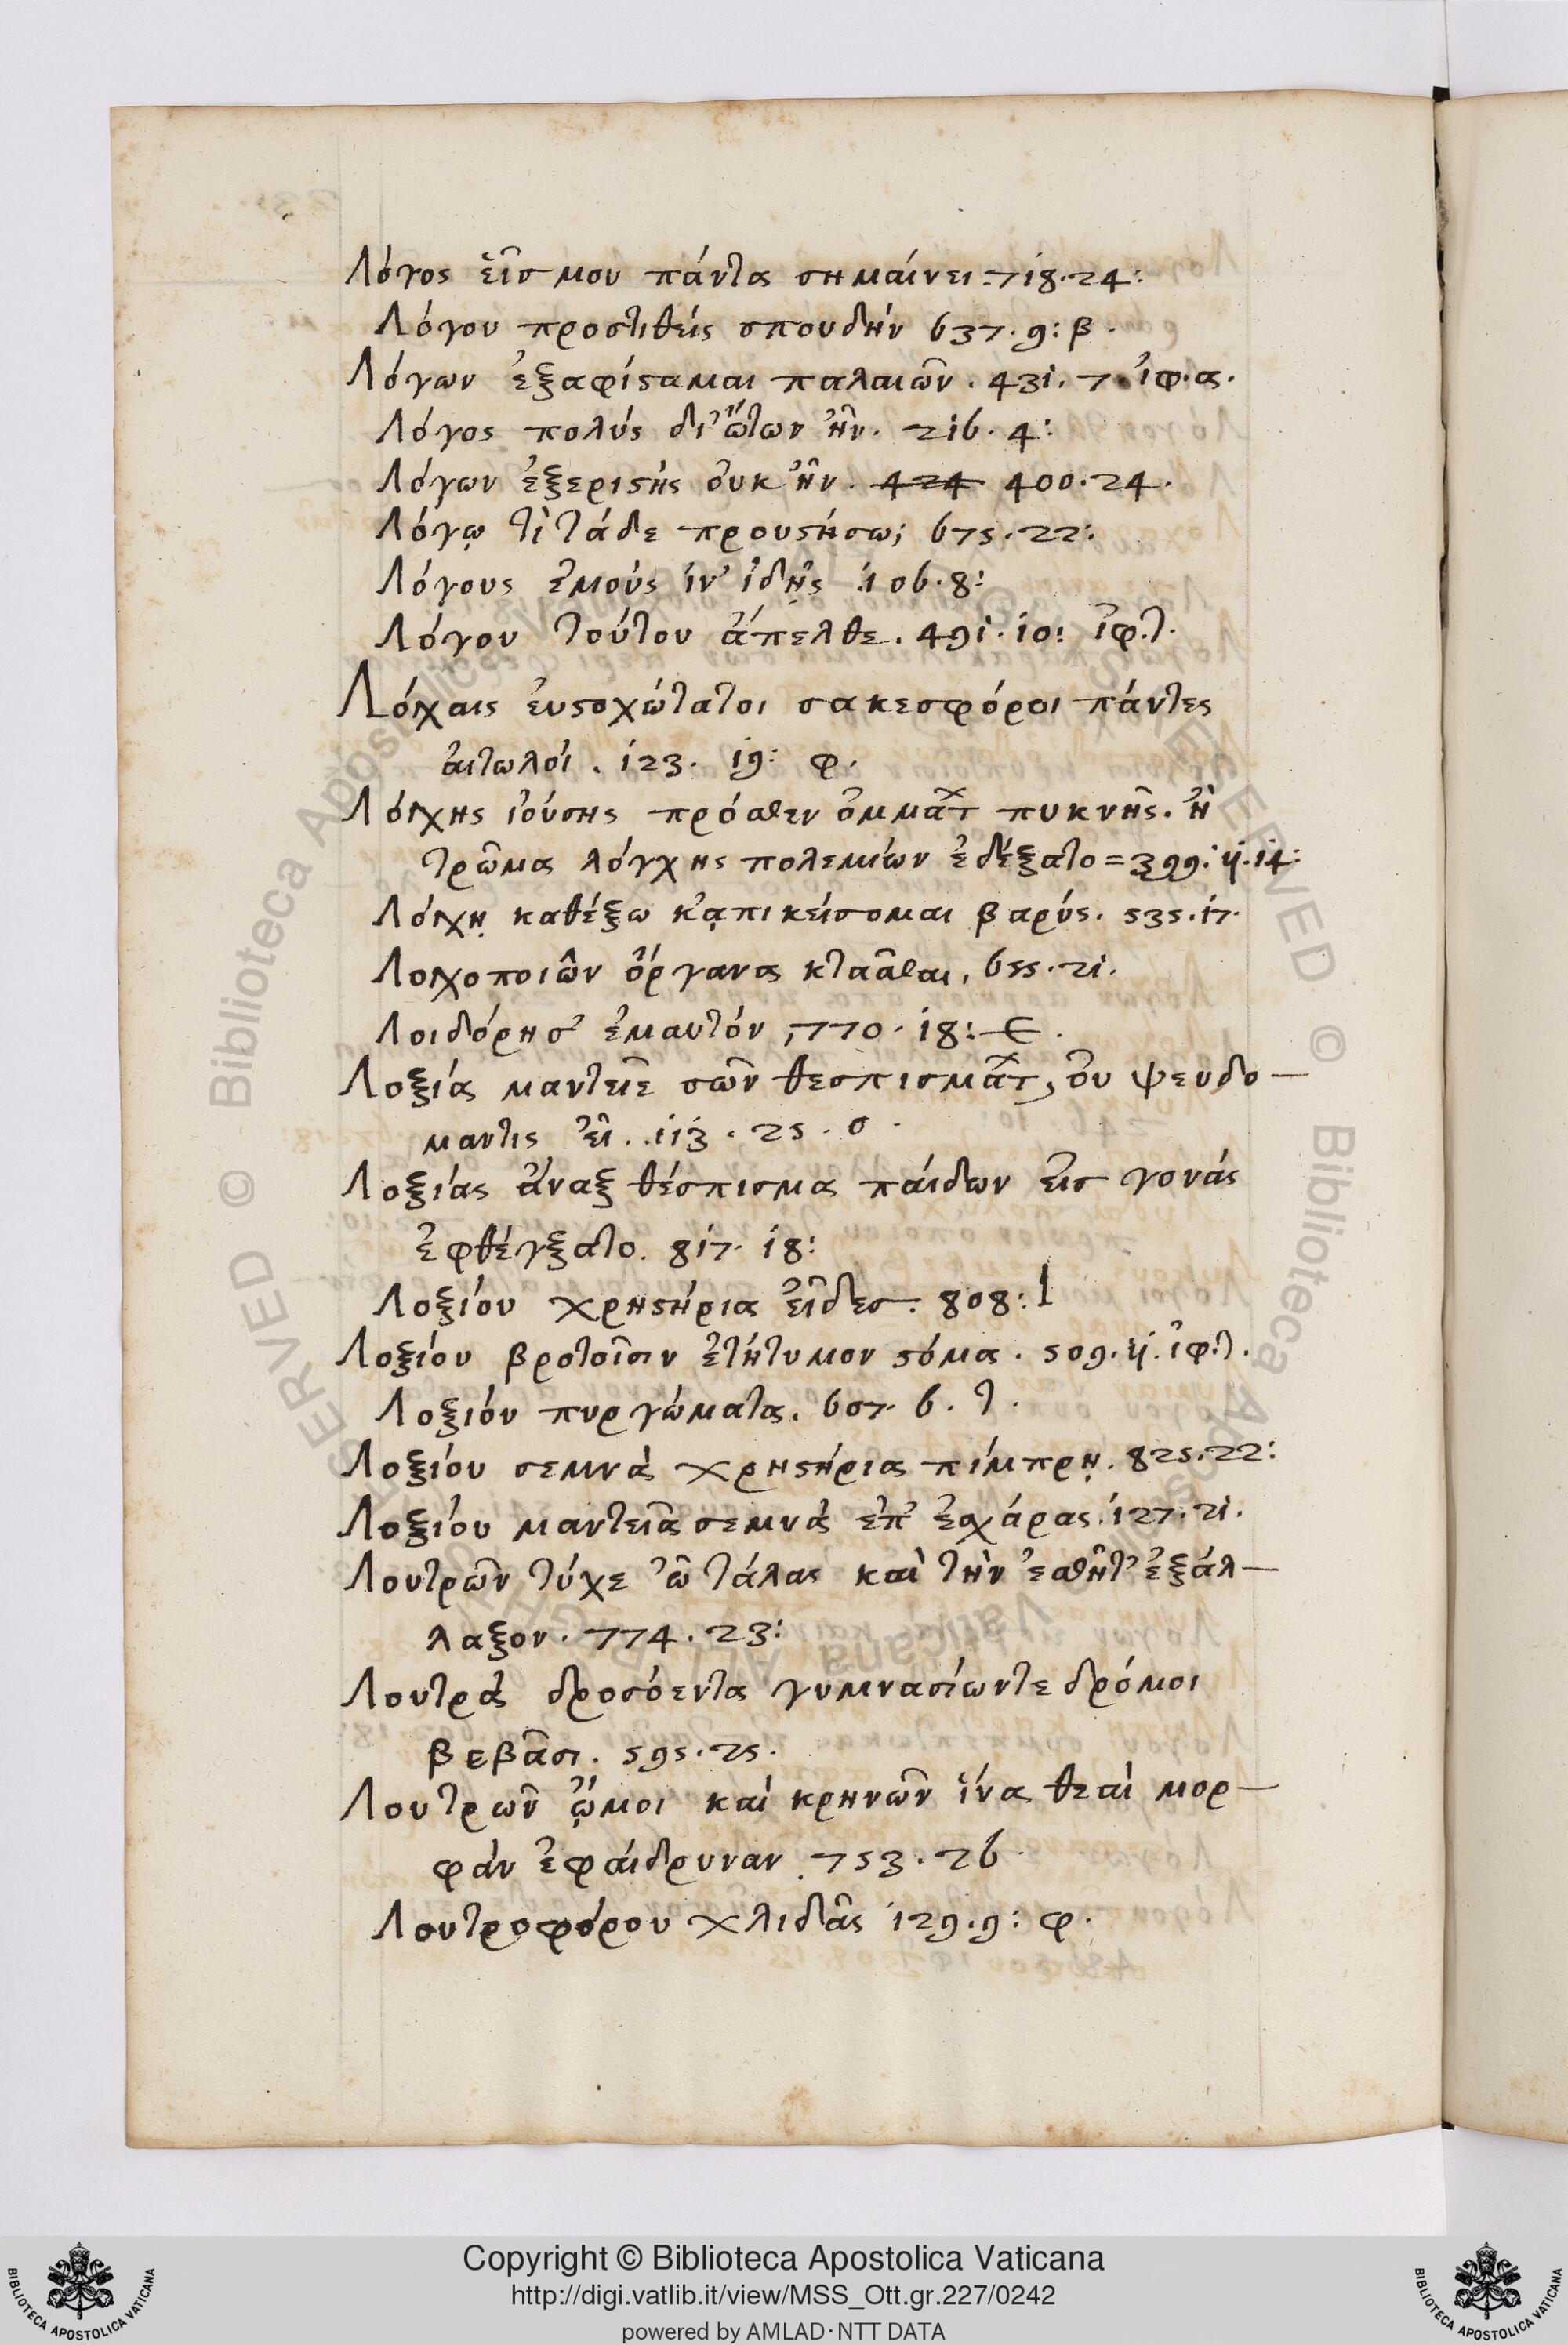 Λόγος εἷσ μου πάντα σημαίνει. 718. 24:
Λόγου προστιθεὶς σπουδὴν 637. 9: β.
Λόγων ἐξαφίσαμαι παλαιῶν. 431. 7. ἰφ. α.
Λόγος πολὺς δι' ὤτων ἦν. 216. 4:
Λόγων ἐξεριστὴς οὐκ ἦν. 424 400. 24.
Λόγῳ τί τάδε προυστήσω; 675. 22:
Λόγους ἐμοὺς ἵν' ἰδῇς 106. 8:
Λόγου τούτου ἄπελθε. 491. 10: ἰφ. τ.
Λόγχαις εὐστοχώτατοι σακεσφόροι πάντες
αἰτωλοί. 123. 19: φ.
Λόγχης ἰούσης πρόσθεν ὀμμάτ πυκνῆς. ἢ
τρῶμα λόγχης πολεμίων ἐδέξατο = 399. 11. 14:
Λόγχῃ καθέξω κᾀπικείσομαι βαρύς. 535. 17.
Λογχοποιῶν ὄργανα κτᾶσθαι, 655. 21.
Λοιδόρησ' ἐμαυτόν, 770. 18: Є.
Λοξία μαντεῖε σῶν θεσπισμάτ, οὐ ψευδο-
μαντις εἶ. 113. 25. σ.
Λοξίας ἄναξ θέσπισμα παίδων εἰσ γονάς
ἐφθέγξατο. 817. 18:
Λοξίου χρηστήρια εἶδεσ. 808: 1
Λοξίου βροτοῖσιν ἐτήτυμον στόμα. 509. 11. ἰφ. τ.
Λοξίου πυργώματα. 607. 6. τ.
Λοξίου σεμνὰ χρηστήρια πίμπρη. 825. 22:
Λοξίου μαντεῖα σεμνὰ ἐπ' ἐσχάρας. 127. 21.
Λουτρῶν τύχε ὦ τάλας καὶ τὴν ἐσθῆτ' ἐξάλ-
λαξον. 774. 23:
Λουτρὰ δροσόεντα γυμνασίωντε δρόμοι
βεβᾶσι. 595. 25.
Λουτρῶν ᾤμοι καὶ κρηνῶν ἵνα θεαὶ μορ-
φὰν ἐφαίδρυναν. 753. 26
Λουτροφόρου χλιδᾶς 129. 9: φ.
Copyright © Biblioteca Apostolica Vaticana
http://digi.vatlib.it/view/MSS_Ott.gr.227/0242
powered by AMLAD·NTT DATA